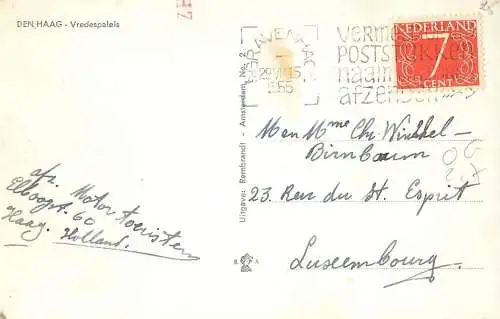 DEN HAAG - Vredespaleis
'S-GRAVENHAGE
1955
VERM
POSTST KKEN
naam
afzender
NEDERLAND
7
CENT
Uitgave: Rembrandt - Amsterdam No. 2
Men Mme Chr. Winkkel-
Birnbaum
23. Rue du St. Esprit
Luxembourg.
afz. Motortoeristen
60
Haag.
Holland.